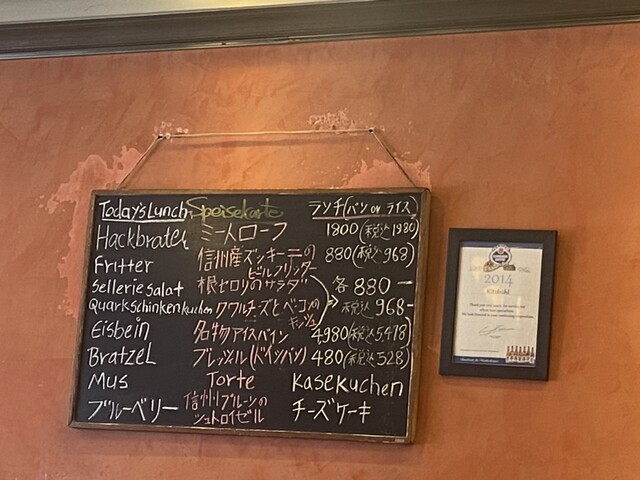 Today's Lunch Speisekarte ランチ(パン or ライス)
Hackbraten ミートローフ 1800(税込1980)
Fritter 信州産ズッキーニのビルフリッター 880(税込968)
Sellerie salat 根セロリのサラダ 各880-
Quarkschinkenkuchen クワルチーズとベーコンのキッシュ 税込968-
Eisbein 名物アイスバイン 4980(税込5478)
Bratzel ブレッツェル(ドイツパン) 480(税込528)
Mus Torte Kasekuchen
ブルーベリー 信州プルーンのシュトロイゼル チーズケーキ
2014